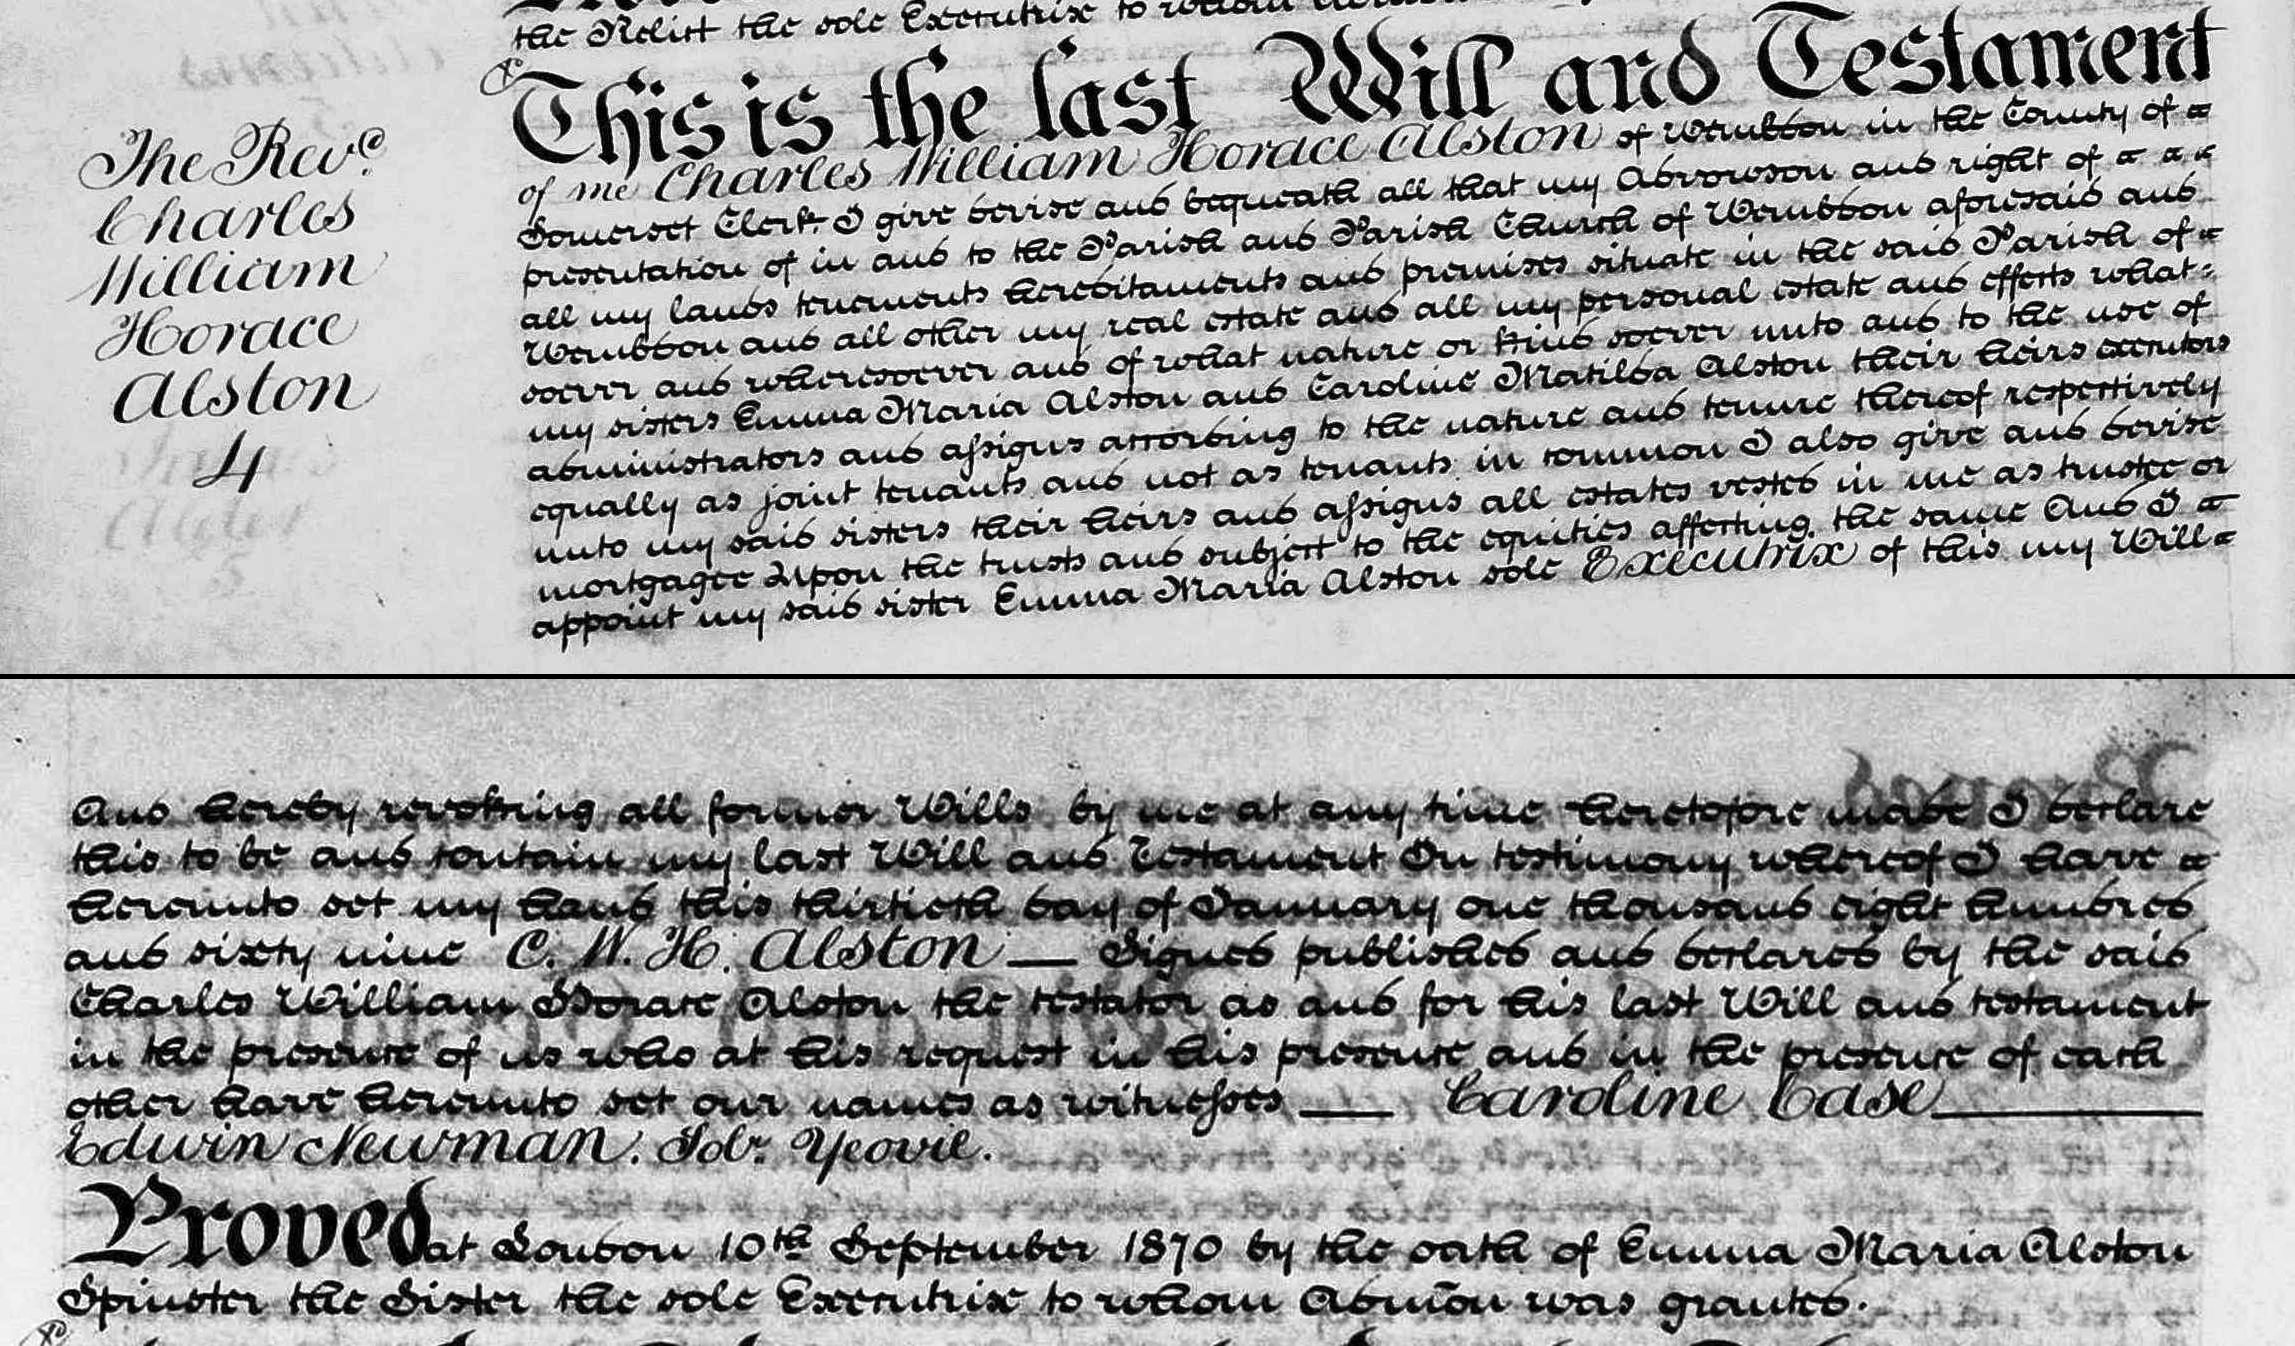 the Relict the sole Executrix to whom
This is the last Will and Testament
The Revd.
Charles
William
Horace
Alston
4
of me Charles William Horace Alston of Wembdon in the County of
Somerset Clerk I give devise and bequeath all that my Advowson and right of
presentation of in and to the Parish and Parish Church of Wembdon aforesaid and
all my lands tenements hereditaments and premises situate in the said Parish of
Wembdon and all other my real estate and all my personal estate and effects what=
soever and wheresoever and of what nature or kind soever unto and to the use of
my sisters Emma Maria Alston and Caroline Matilda Alston their heirs executors
administrators and assigns according to the nature and tenure thereof respectively
equally as joint tenants and not as tenants in common I also give and devise
unto my said sisters their heirs and assigns all estates vested in me as trustee or
mortgagee Upon the trusts and subject to the equities affecting the same And I
appoint my said sister Emma Maria Alston sole Executrix of this my Will
And hereby revoking all former Wills by me at any time heretofore made I declare
this to be and contain my last Will and Testament In testimony whereof I have
hereunto set my hand this thirtieth day of January one thousand eight hundred
and sixty nine C. W. H. Alston — Signed published and declared by the said
Charles William Horace Alston the testator as and for his last Will and testament
in the presence of us who at his request in his presence and in the presence of each
other have hereunto set our names as witnesses — Caroline Case —
Edwin Newman. Solr. Yeovil.
Proved at London 10th September 1870 by the oath of Emma Maria Alston
Spinster the Sister the sole Executrix to whom Admon was granted.